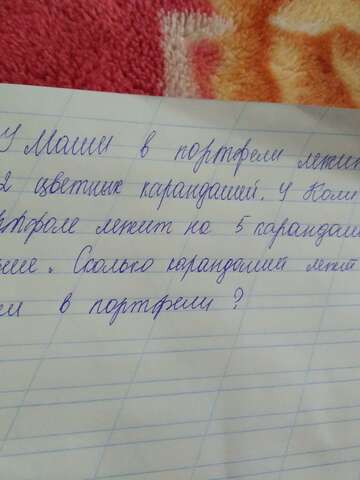 У Маши в портфели лежит
2 цветных карандашей. У Коли
портфоле лежит на 5 карандаш
Сколько карандашей лежит
в портфели?